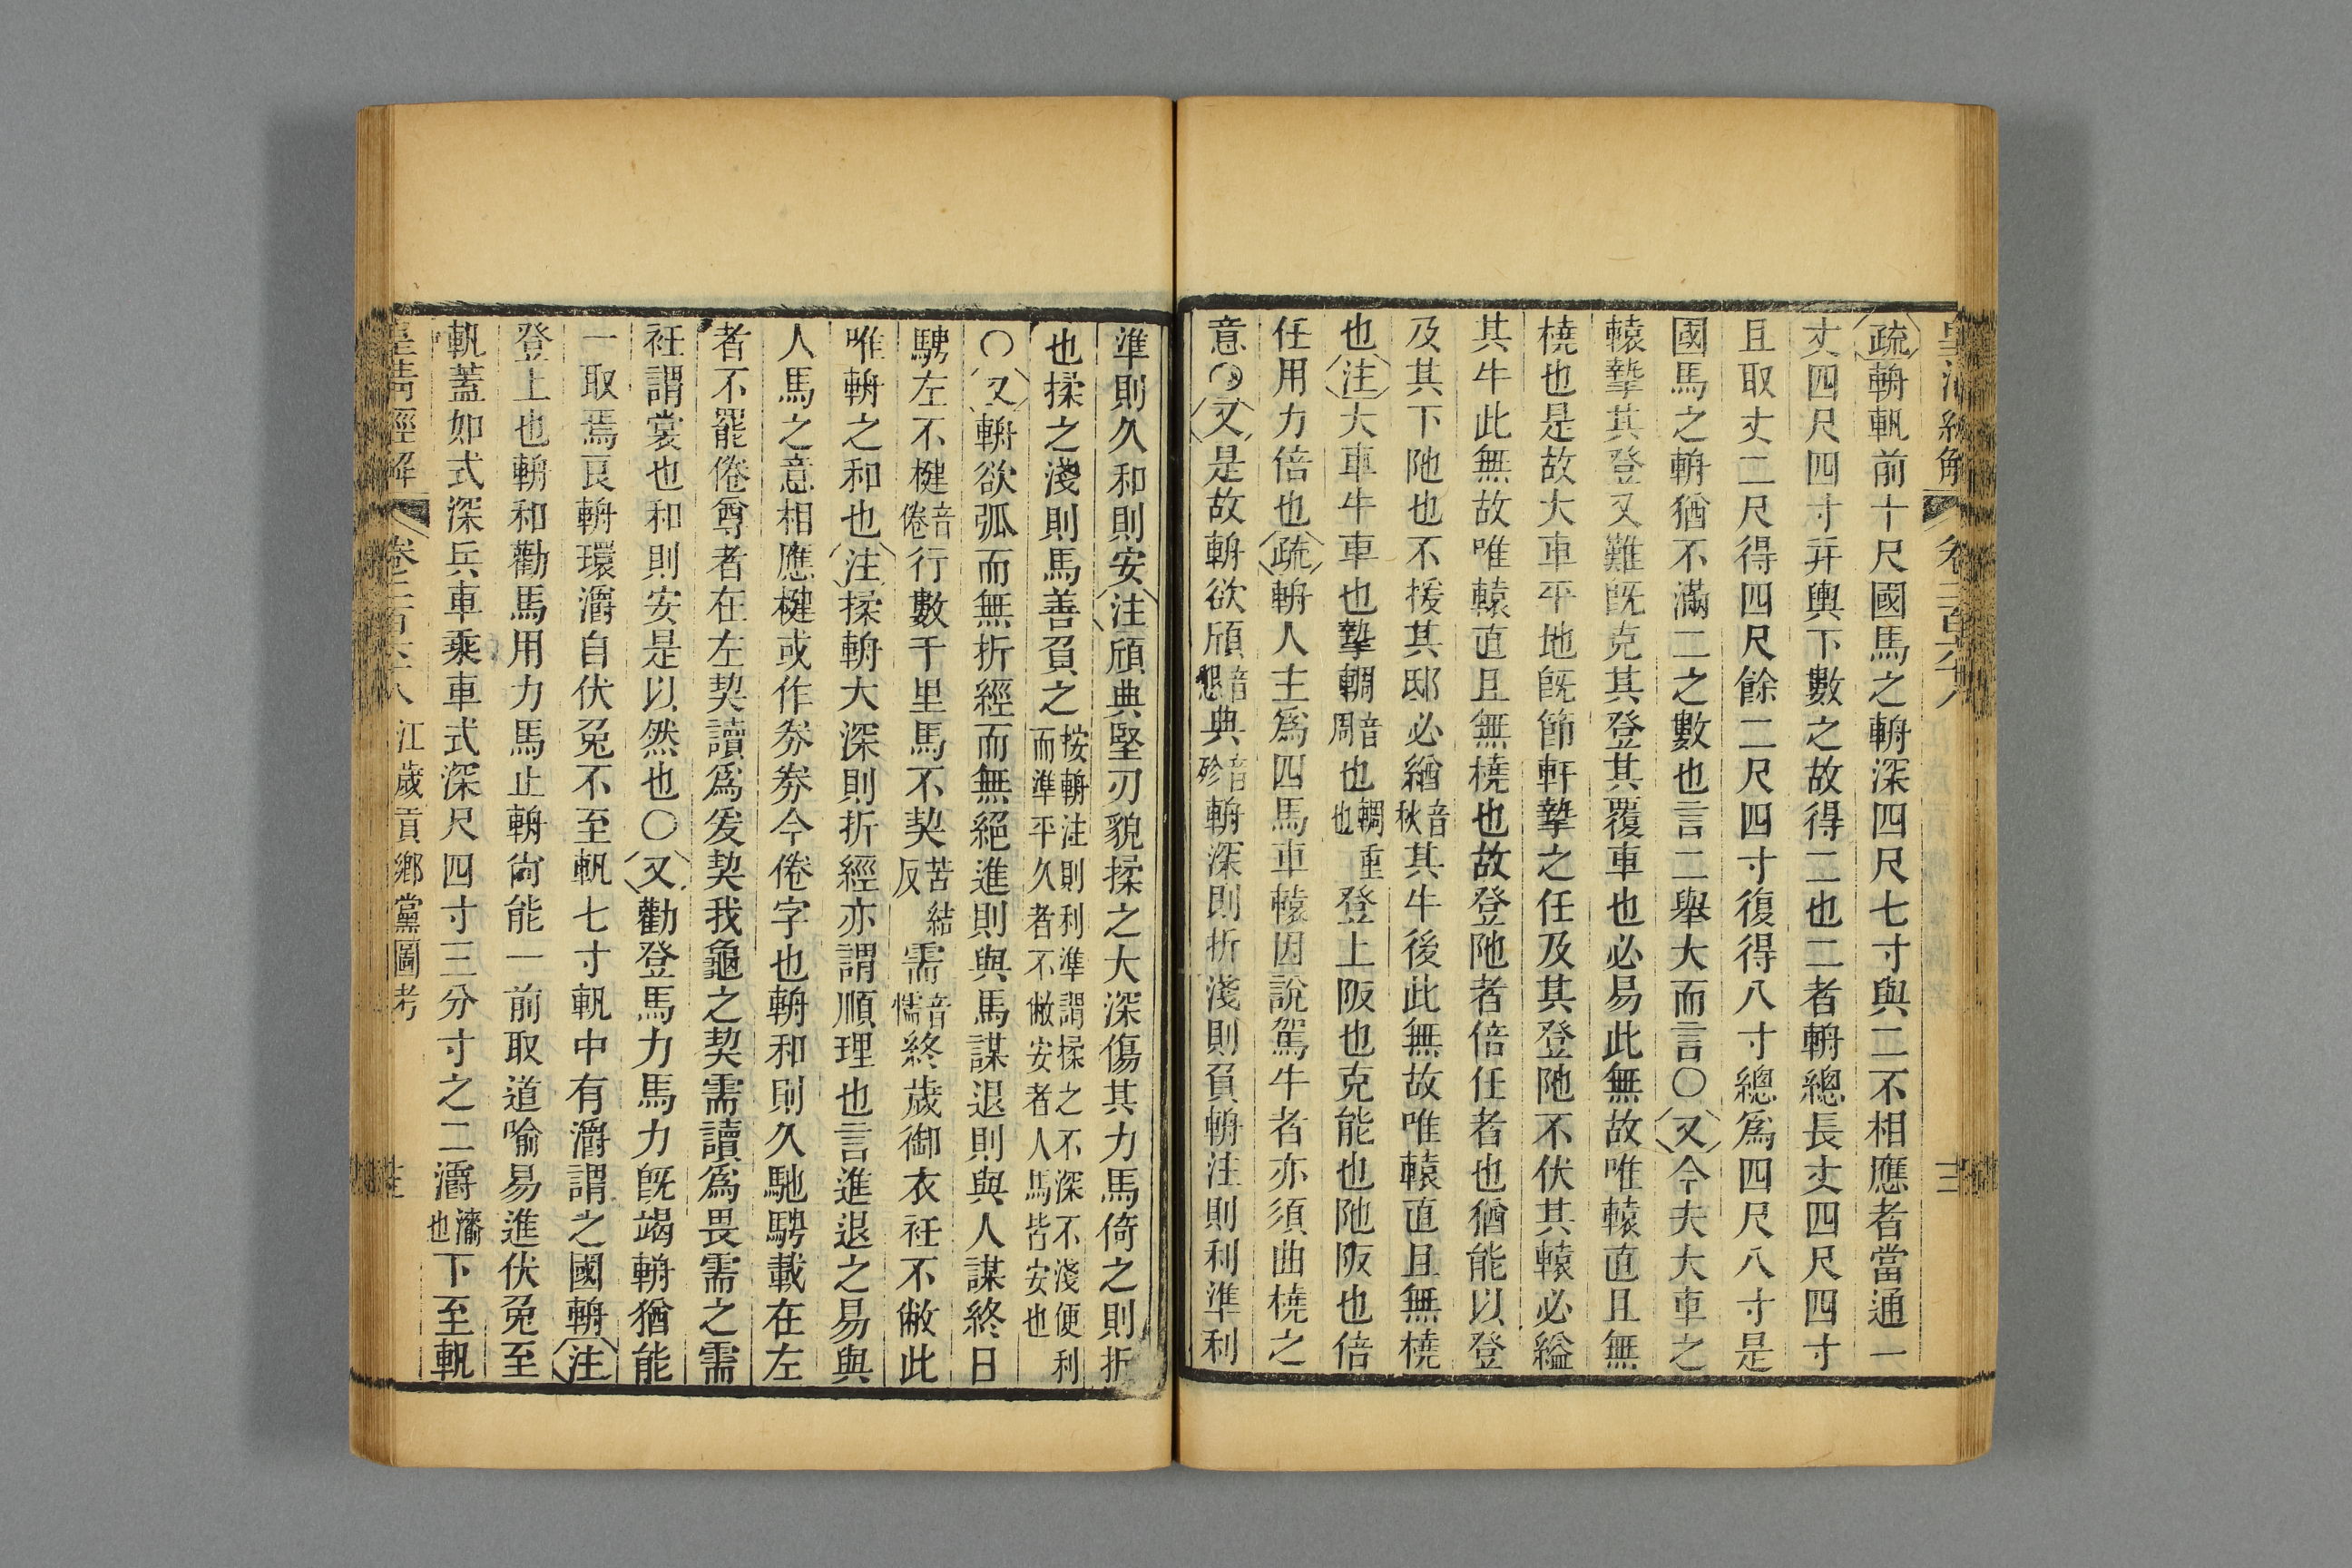 疏輈軓前十尺國馬之輈深四尺七寸與二不相應者當通一
丈四尺四寸幷輿下數之故得二也二者輈總長丈四尺四寸
且取丈二尺得四尺餘二尺四寸復得八寸總爲四尺八寸是
國馬之輈猶不滿二之數也言二舉大而言〇又今夫大車之
轅摯其登又難旣克其登其覆車也必易此無故唯轅直且無
橈也是故大車平地旣節軒摯之任及其登阤不伏其轅必縊
其牛此無故唯轅直且無橈也故登阤者倍任者也猶能以登
及其下阤也不援其邸必緧音秋其牛後此無故唯轅直且無橈
也注大車牛車也摯輖音周也輖重也登上阪也克能也阤阪也倍
任用力倍也疏輈人主爲四馬車轅因說駕牛者亦須曲橈之
意〇又是故輈欲頎音懇典音殄輈深則折淺則負輈注則利準利
準則久和則安注頎典堅刃貌揉之大深傷其力馬倚之則折
也揉之淺則馬善負之按輈注則利準謂揉之不深不淺便利而準平久者不敝安者人馬皆安也
〇又輈欲弧而無折經而無絕進則與馬謀退則與人謀終日
騁左不楗音倦行數千里馬不契苦結反需音懦終歲御衣衽不敝此
唯輈之和也注揉輈大深則折經亦謂順理也言進退之易與
人馬之意相應楗或作劵劵今倦字也輈和則久馳騁載在左
者不罷倦尊者在左契讀爲爰契我龜之契需讀爲畏需之需
衽謂裳也和則安是以然也〇又勸登馬力馬力旣竭輈猶能
一取焉良輈環灂自伏兔不至軓七寸軓中有灂謂之國輈注
登上也輈和勸馬用力馬止輈尙能一前取道喻易進伏兔至
軓蓋如式深兵車乘車式深尺四寸三分寸之二灂漆也下至軓
皇淸經解 江歲貢鄉黨圖考